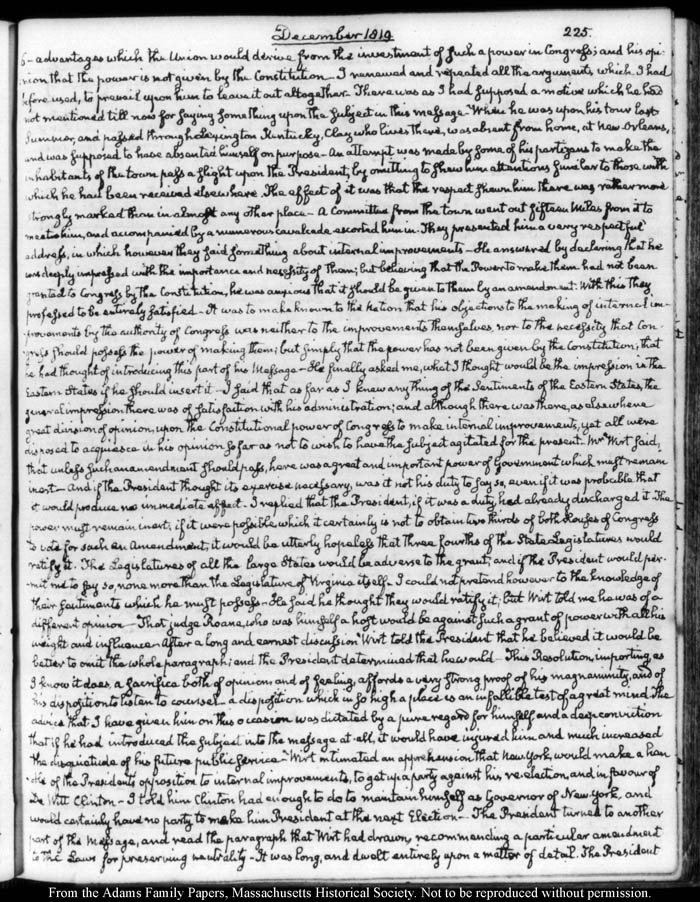 December 1819
225.
advantages which the Union would derive from the investment of such a power in Congress; and his opi-
nion that the power is not given by the Constitution — I renewed and repeated all the arguments which I had
before used, to prevail upon him to leave it out altogether. There was as I had supposed a motive which he had
not mentioned till now for saying something upon the subject in this message. When he was upon his tour last
Summer, and passed through Lexington Kentucky, Clay who lives there, was absent from home, at New Orleans,
and was supposed to have absented himself on purpose — An attempt was made by some of his partizans to make the
inhabitants of the town pass a slight upon the President, by omitting to shew him attentions similar to those with
which he had been received elsewhere. The effect of it was that the respect shewn him there was rather more
strongly marked than in almost any other place — A Committee from the town went out fifteen miles from it to
meet him, and accompanied by a numerous cavalcade escorted him in. They presented him a very respectful
address, in which however they said something about internal improvements — He answered by declaring that he
was deeply impressed with the importance and necessity of them; but believing that the Power to make them had not been
granted to Congress by the Constitution, he was anxious that it should be given to them by an amendment. With this they
professed to be entirely satisfied — It was to make known to the Nation that his objections to the making of internal im-
provements by the authority of Congress was neither to the improvements themselves, nor to the necessity that Con-
gress should possess the power of making them; but simply that the power has not been given by the Constitution; that
he had thought of introducing this part of his Message — He finally asked me, what I thought would be the impression in the
Eastern States if he should insert it — I said that as far as I knew any thing of the Sentiments of the Eastern States, the
general impression there was of satisfaction with his administration; and although there was there, as elsewhere
great division of opinion, upon the Constitutional power of Congress to make internal improvements, yet all were
disposed to acquiesce in his opinion so far as not to wish to have the subject agitated for the present. Mr Wirt said,
that unless such an amendment should pass, here was a great and important power of Government which must remain
inert — And if the President thought its exercise necessary, was it not his duty to say so, even if it was probable that
it would produce no immediate effect. I replied that the President, if it was a duty, had already discharged it. The
power must remain inert; if it were possible which it certainly is not to obtain two thirds of both Houses of Congress
to vote for such an Amendment, it would be utterly hopeless that three fourths of the State Legislatures would
ratify it. The Legislatures of all the large States would be adverse to the grant; and if the President would per-
mit me to say so, none more than the Legislature of Virginia itself. I could not pretend however to the knowledge of
their sentiments which he must possess — He said he thought they would ratify it; but Wirt told me he was of a
different opinion — That judge Roane, who was himself a host would be against such a grant of power with all his
weight and influence. After a long and earnest discussion Wirt told the President that he believed it would be
better to omit the whole paragraph; and the President determined that he would — This Resolution, importing as
I know it does, a sacrifice both of opinion and of feeling, affords a very strong proof of his magnanimity, and of
his disposition to listen to counsel — a disposition which in so high a place is an infallible test of a great mind. The
advice that I have given him on this occasion was dictated by a pure regard for himself and a deep conviction
that if he had introduced the subject into the message at all, it would have injured him and much increased
the disquietude of his future public service. Wirt intimated an apprehension that New York, would make a han-
dle of the Presidents opposition to internal improvements, to get up a party against his re-election, and in favour of
De Witt Clinton — I told him Clinton had enough to do to maintain himself as Governor of New York, and
would certainly have no party to make him President at the next Election — The President turned to another
part of the Message, and read the paragraph that Wirt had drawn, recommending a particular amendment
to the Laws for preserving neutrality — It was long, and dwelt entirely upon a matter of detail. The President
From the Adams Family Papers, Massachusetts Historical Society. Not to be reproduced without permission.